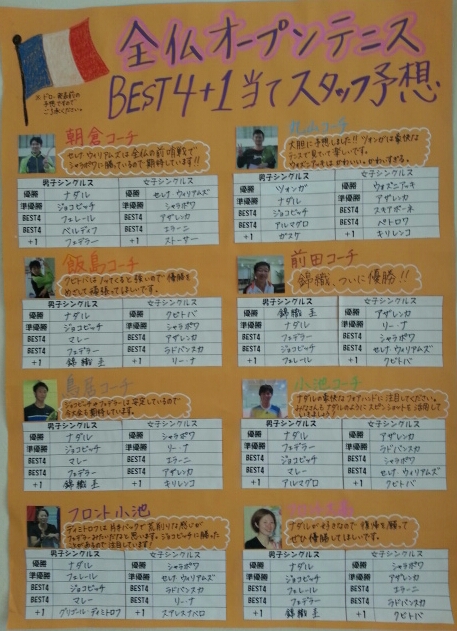 全仏オープンテニス
BEST4+1当てスタッフ予想
朝倉コーチ
セレナ ウィリアムズは全仏の前哨戦で
シャラポワに勝っているので期待しています!!
男子シングルス 女子シングルス
優勝 ナダル 優勝 セレナ ウィリアムズ
準優勝 ジョコビッチ 準優勝 シャラポワ
BEST4 フェレール BEST4 アザレンカ
BEST4 ベルディフ BEST4 エラーニ
+1 フェデラー +1 ストーサー
コーチ
大胆に予想しました!! ツォンガは豪快な
テニスで見ていて楽しいです。
ウォズニアッキはかわいい。かわいすぎる。
男子シングルス 女子シングルス
優勝 ツォンガ 優勝 ウォズニアッキ
準優勝 ナダル 準優勝 アザレンカ
BEST4 ジョコビッチ BEST4 スキアボーネ
BEST4 アルマグロ BEST4 ペトロワ
+1 ガスケ +1 キリレンコ
飯島コーチ
クビトバはノッてくると強いので優勝を
めざして頑張ってほしいです。
男子シングルス 女子シングルス
優勝 ナダル 優勝 クビトバ
準優勝 ジョコビッチ 準優勝 シャラポワ
BEST4 マレー BEST4 アザレンカ
BEST4 フェデラー BEST4 ラドバンスカ
+1 錦織 圭 +1 リーナ
前田コーチ
錦織、ついに優勝!!
男子シングルス 女子シングルス
優勝 錦織 圭 優勝 アザレンカ
準優勝 ナダル 準優勝 リーナ
BEST4 フェデラー BEST4 シャラポワ
BEST4 ジョコビッチ BEST4 セレナ ウィリアムズ
+1 フェレール +1 クビトバ
コーチ
ジョコビッチのフォアハンドは安定しているので
今大会も期待しています。
男子シングルス 女子シングルス
優勝 ナダル 優勝 シャラポワ
準優勝 ジョコビッチ 準優勝 リーナ
BEST4 マレー BEST4 エラーニ
BEST4 フェデラー BEST4 アザレンカ
+1 錦織 圭 +1 キリレンコ
小池コーチ
ナダルの豪快なフォアハンドに注目してください。
みなさんもナダルのようにスピンショットを活用して
男子シングルス 女子シングルス
優勝 ナダル 優勝 アザレンカ
準優勝 フェデラー 準優勝 ラドバンスカ
BEST4 ジョコビッチ BEST4 シャラポワ
BEST4 マレー BEST4 セレナ ウィリアムズ
+1 アルマグロ +1 クビトバ
フロント小池
ディミトロフは片手バックで
フェデラーみたいだなと思います。ジョコビッチに勝った
ことがあるので注目しています!
男子シングルス 女子シングルス
優勝 ナダル 優勝 シャラポワ
準優勝 フェレール 準優勝 セレナ ウィリアムズ
BEST4 ジョコビッチ BEST4 アザレンカ
BEST4 マレー BEST4 リーナ
+1 グリゴール・ディミトロフ +1
ナダルが好きなので 復帰を願って
ぜひ優勝してほしいです。
男子シングルス 女子シングルス
優勝 ナダル 優勝 シャラポワ
準優勝 ジョコビッチ 準優勝 アザレンカ
BEST4 マレー BEST4 エラーニ
BEST4 フェデラー BEST4 ラドバンスカ
+1 錦織 圭 +1 クビトバ